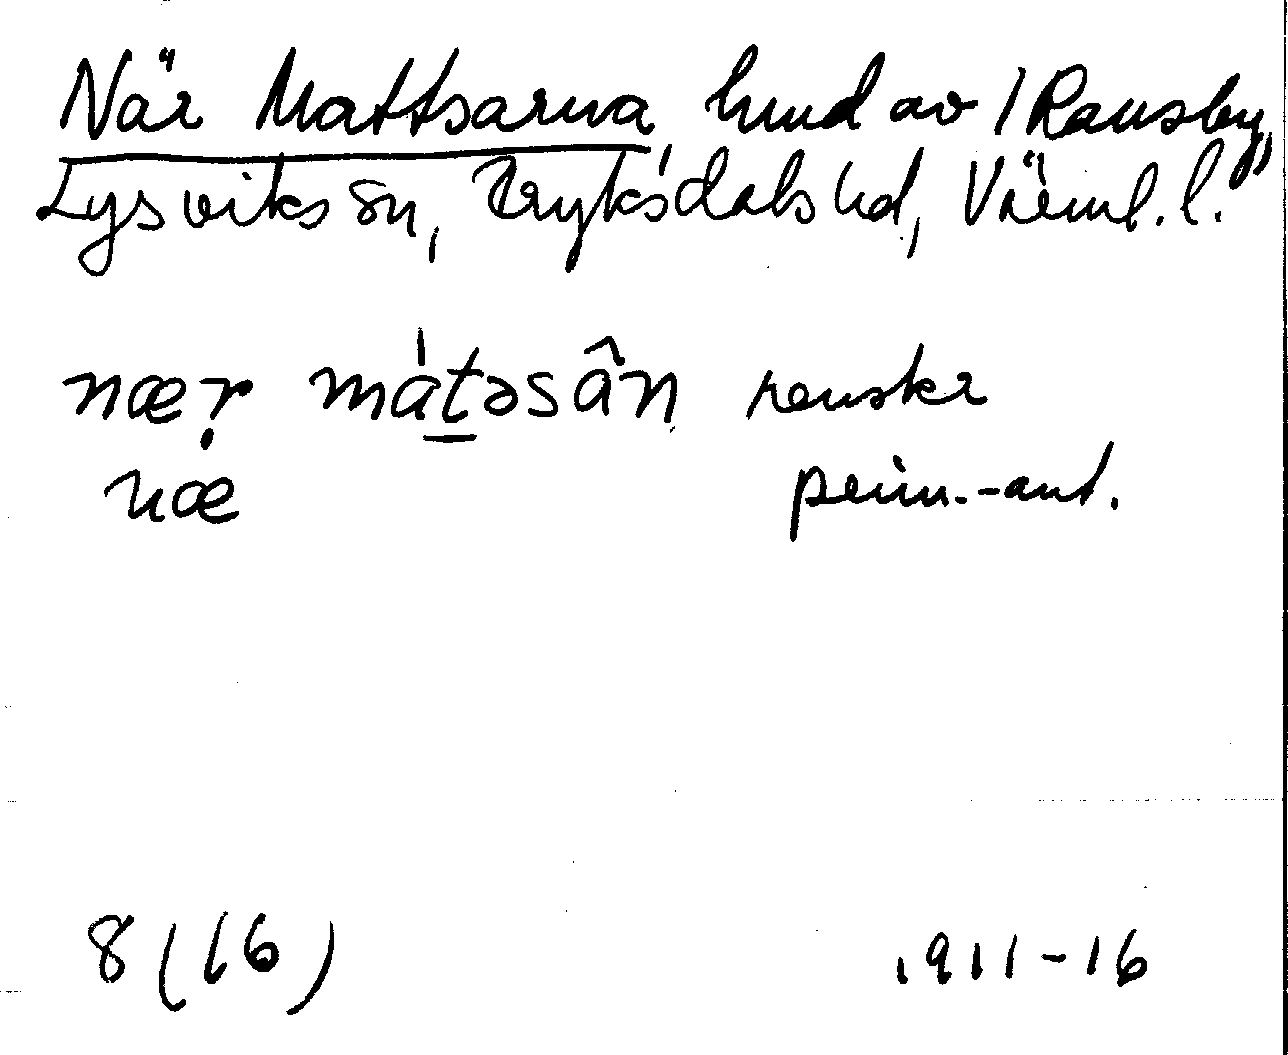 När Mattsarna, hmd av 1 Ransby,
Lysviks sn, Fryksdals hd, Värml. l.
nær mátəsân renskr
næ prim.-ant.
8 (16) 1911-16